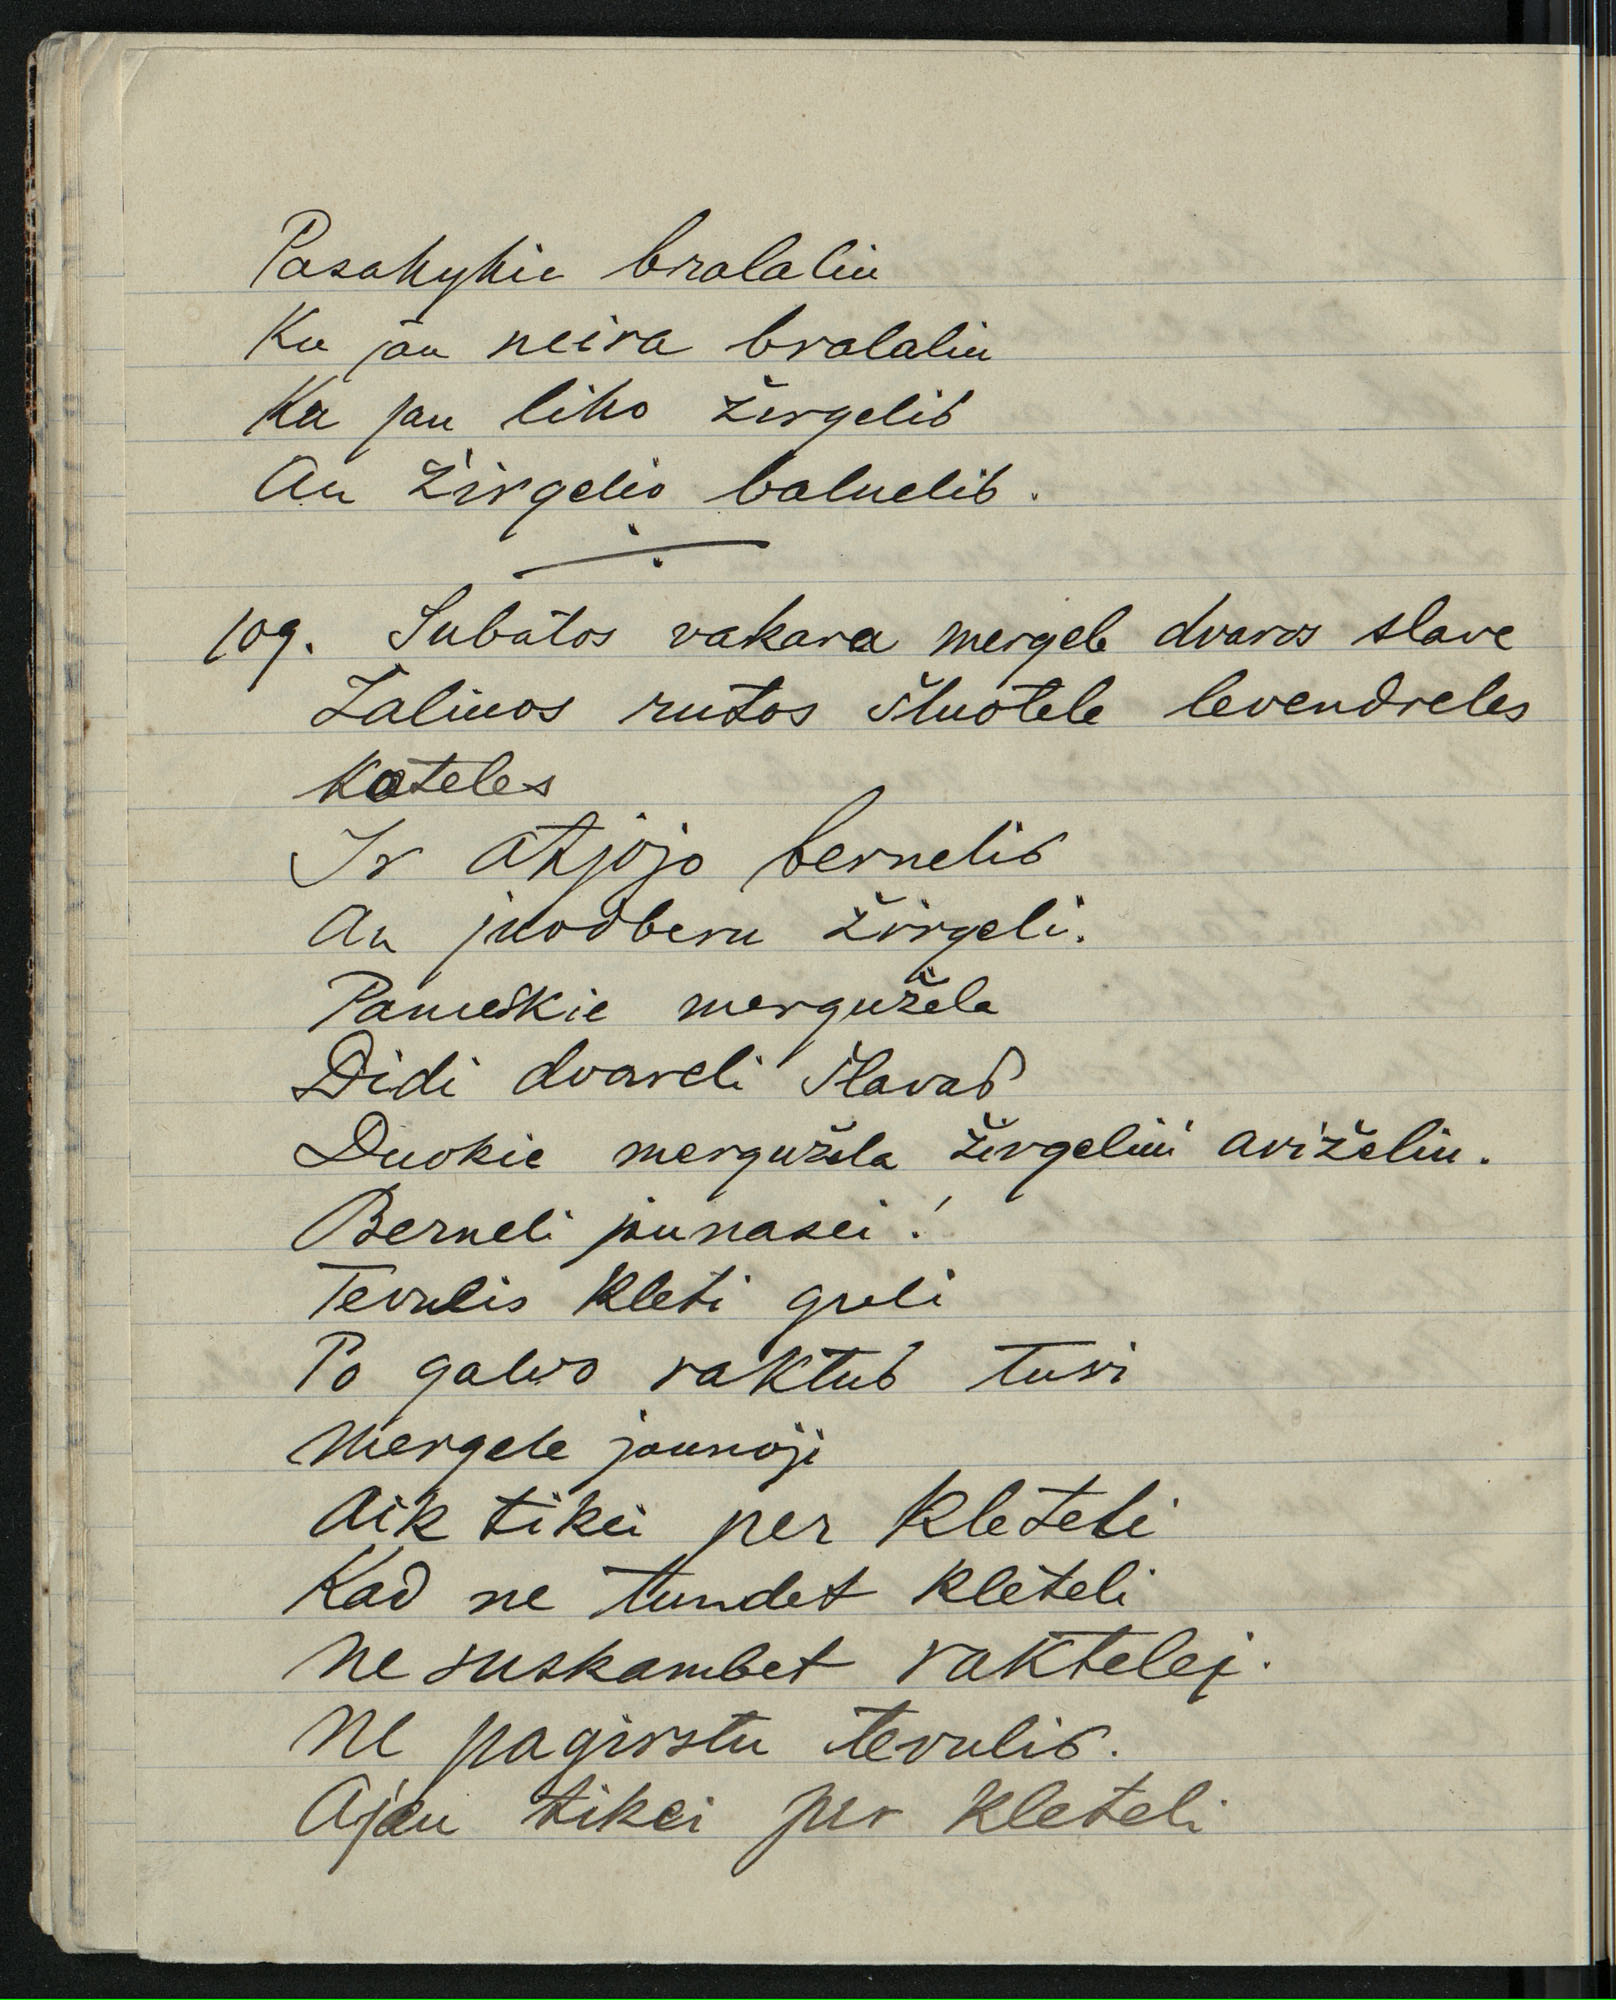 Pasakykie bralaliu
Ku jau neira bralaliu
Ka jau liko žirgelis
An žirgelio balnelis.
109. Subatos vakara mergele dvaros slave
Žalinos rutos šluotele levendreles
Koteles
Ir atjojo bernelis
An juodberu žirgeli.
Pameškie mergužela
Didi dvareli šlavas
Duokie mergužela žirgelini aviželiu.
Berneli junasei!
Tevulis kleti guli
Po galvo raktus turi
Mergele jaunoji
Aik tikei per kleteli
Kad ne tundet kleteli
Ne suskambet raktelei.
Ne pagirstu tevulis.
Ajau tikei per kleteli